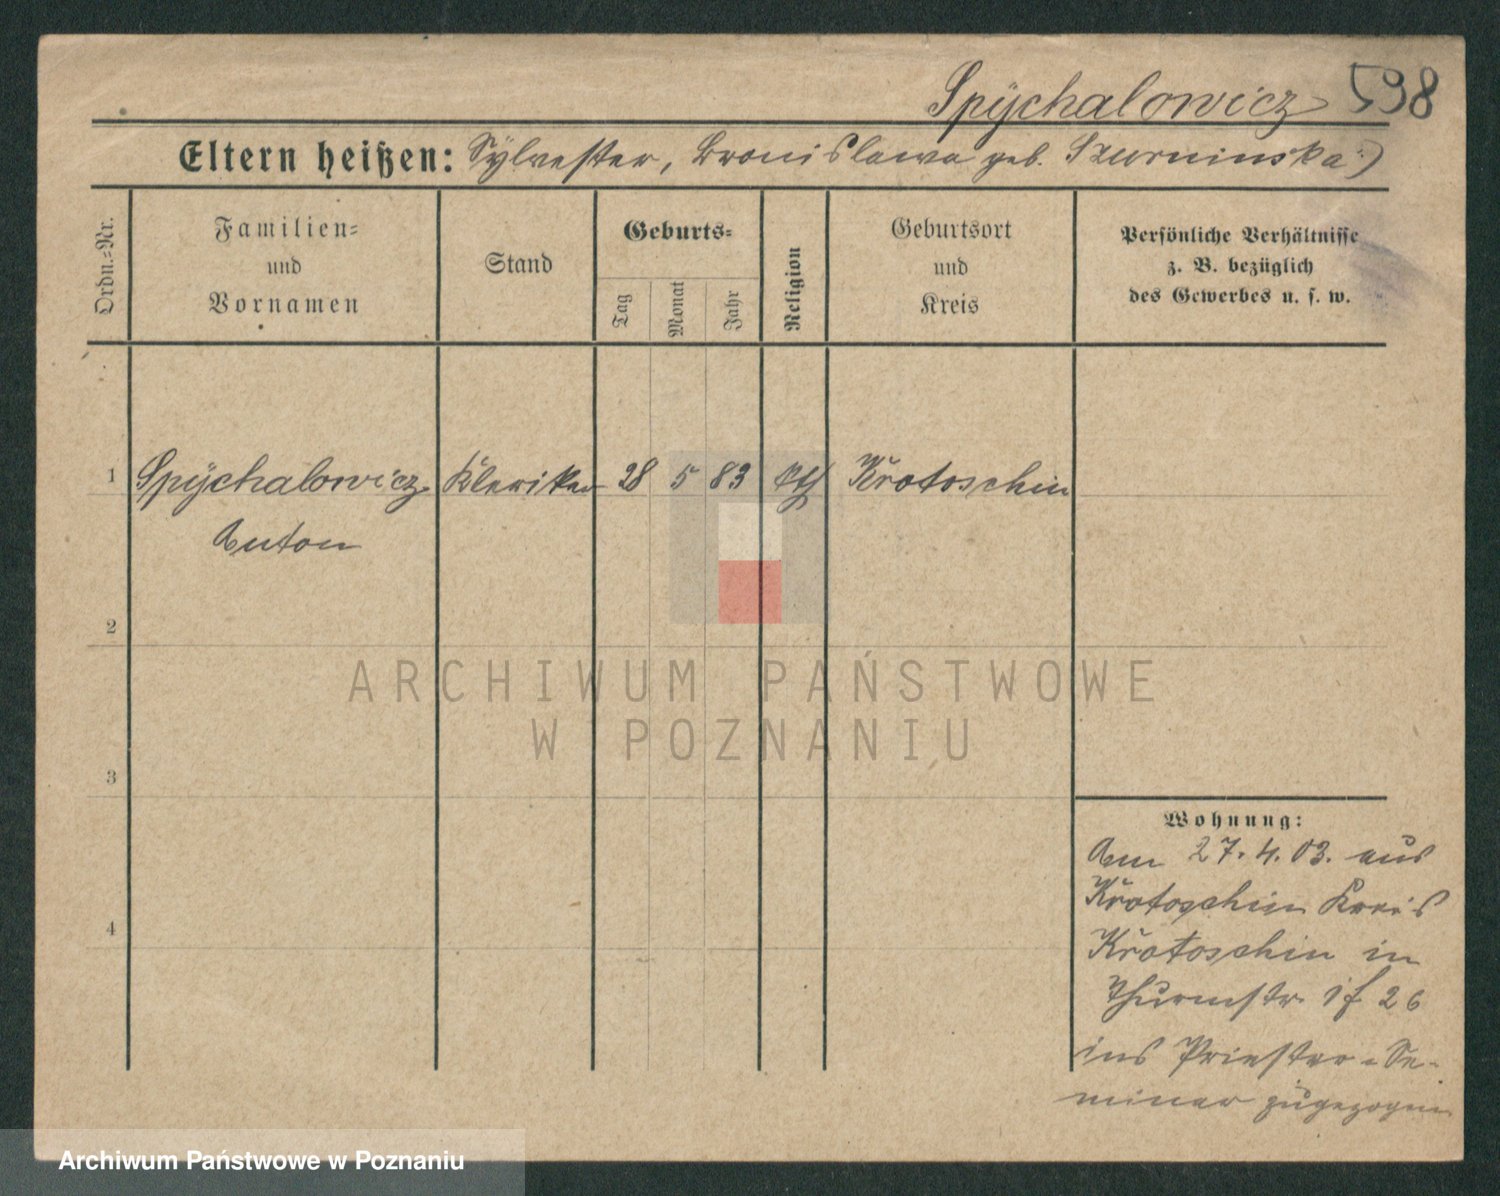 Spÿchalowicz 598
Eltern heißen: Sÿlvester, Bronislawa geb. Szurminska
Ordn.=Nr.
Familien=
und
Vornamen
Stand
Geburts=
Tag
Monat
Jahr
Religion
Geburtsort
und
Kreis
Persönliche Verhältnisse
z. B. bezüglich
des Gewerbes u. s. w.
1 Spÿchalowicz Kleriker 28 5 83 kth Krotoschin
Anton
2
3
4
Wohnung:
Am 27.4.03. aus
Krotoschin Kreis
Krotoschin in
Thurmstr. 26
ins Priester=Se=
minar zugezogen
ARCHIWUM PAŃSTWOWE
W POZNANIU
Archiwum Państwowe w Poznaniu